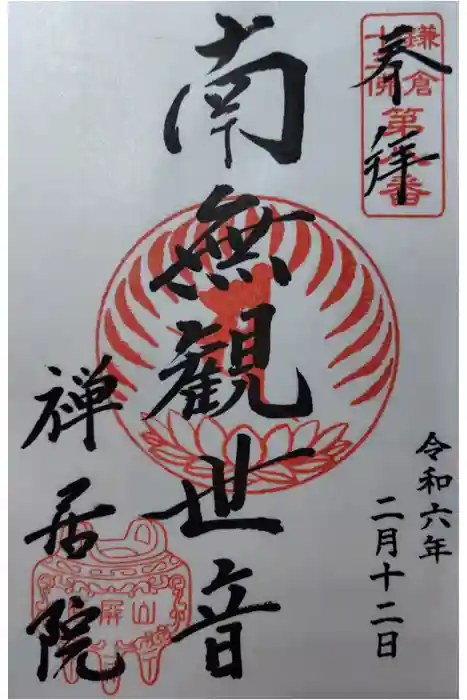 奉拝
鎌倉
十三佛
第
番
南無観世音
令和六年
二月十二日
禅居院